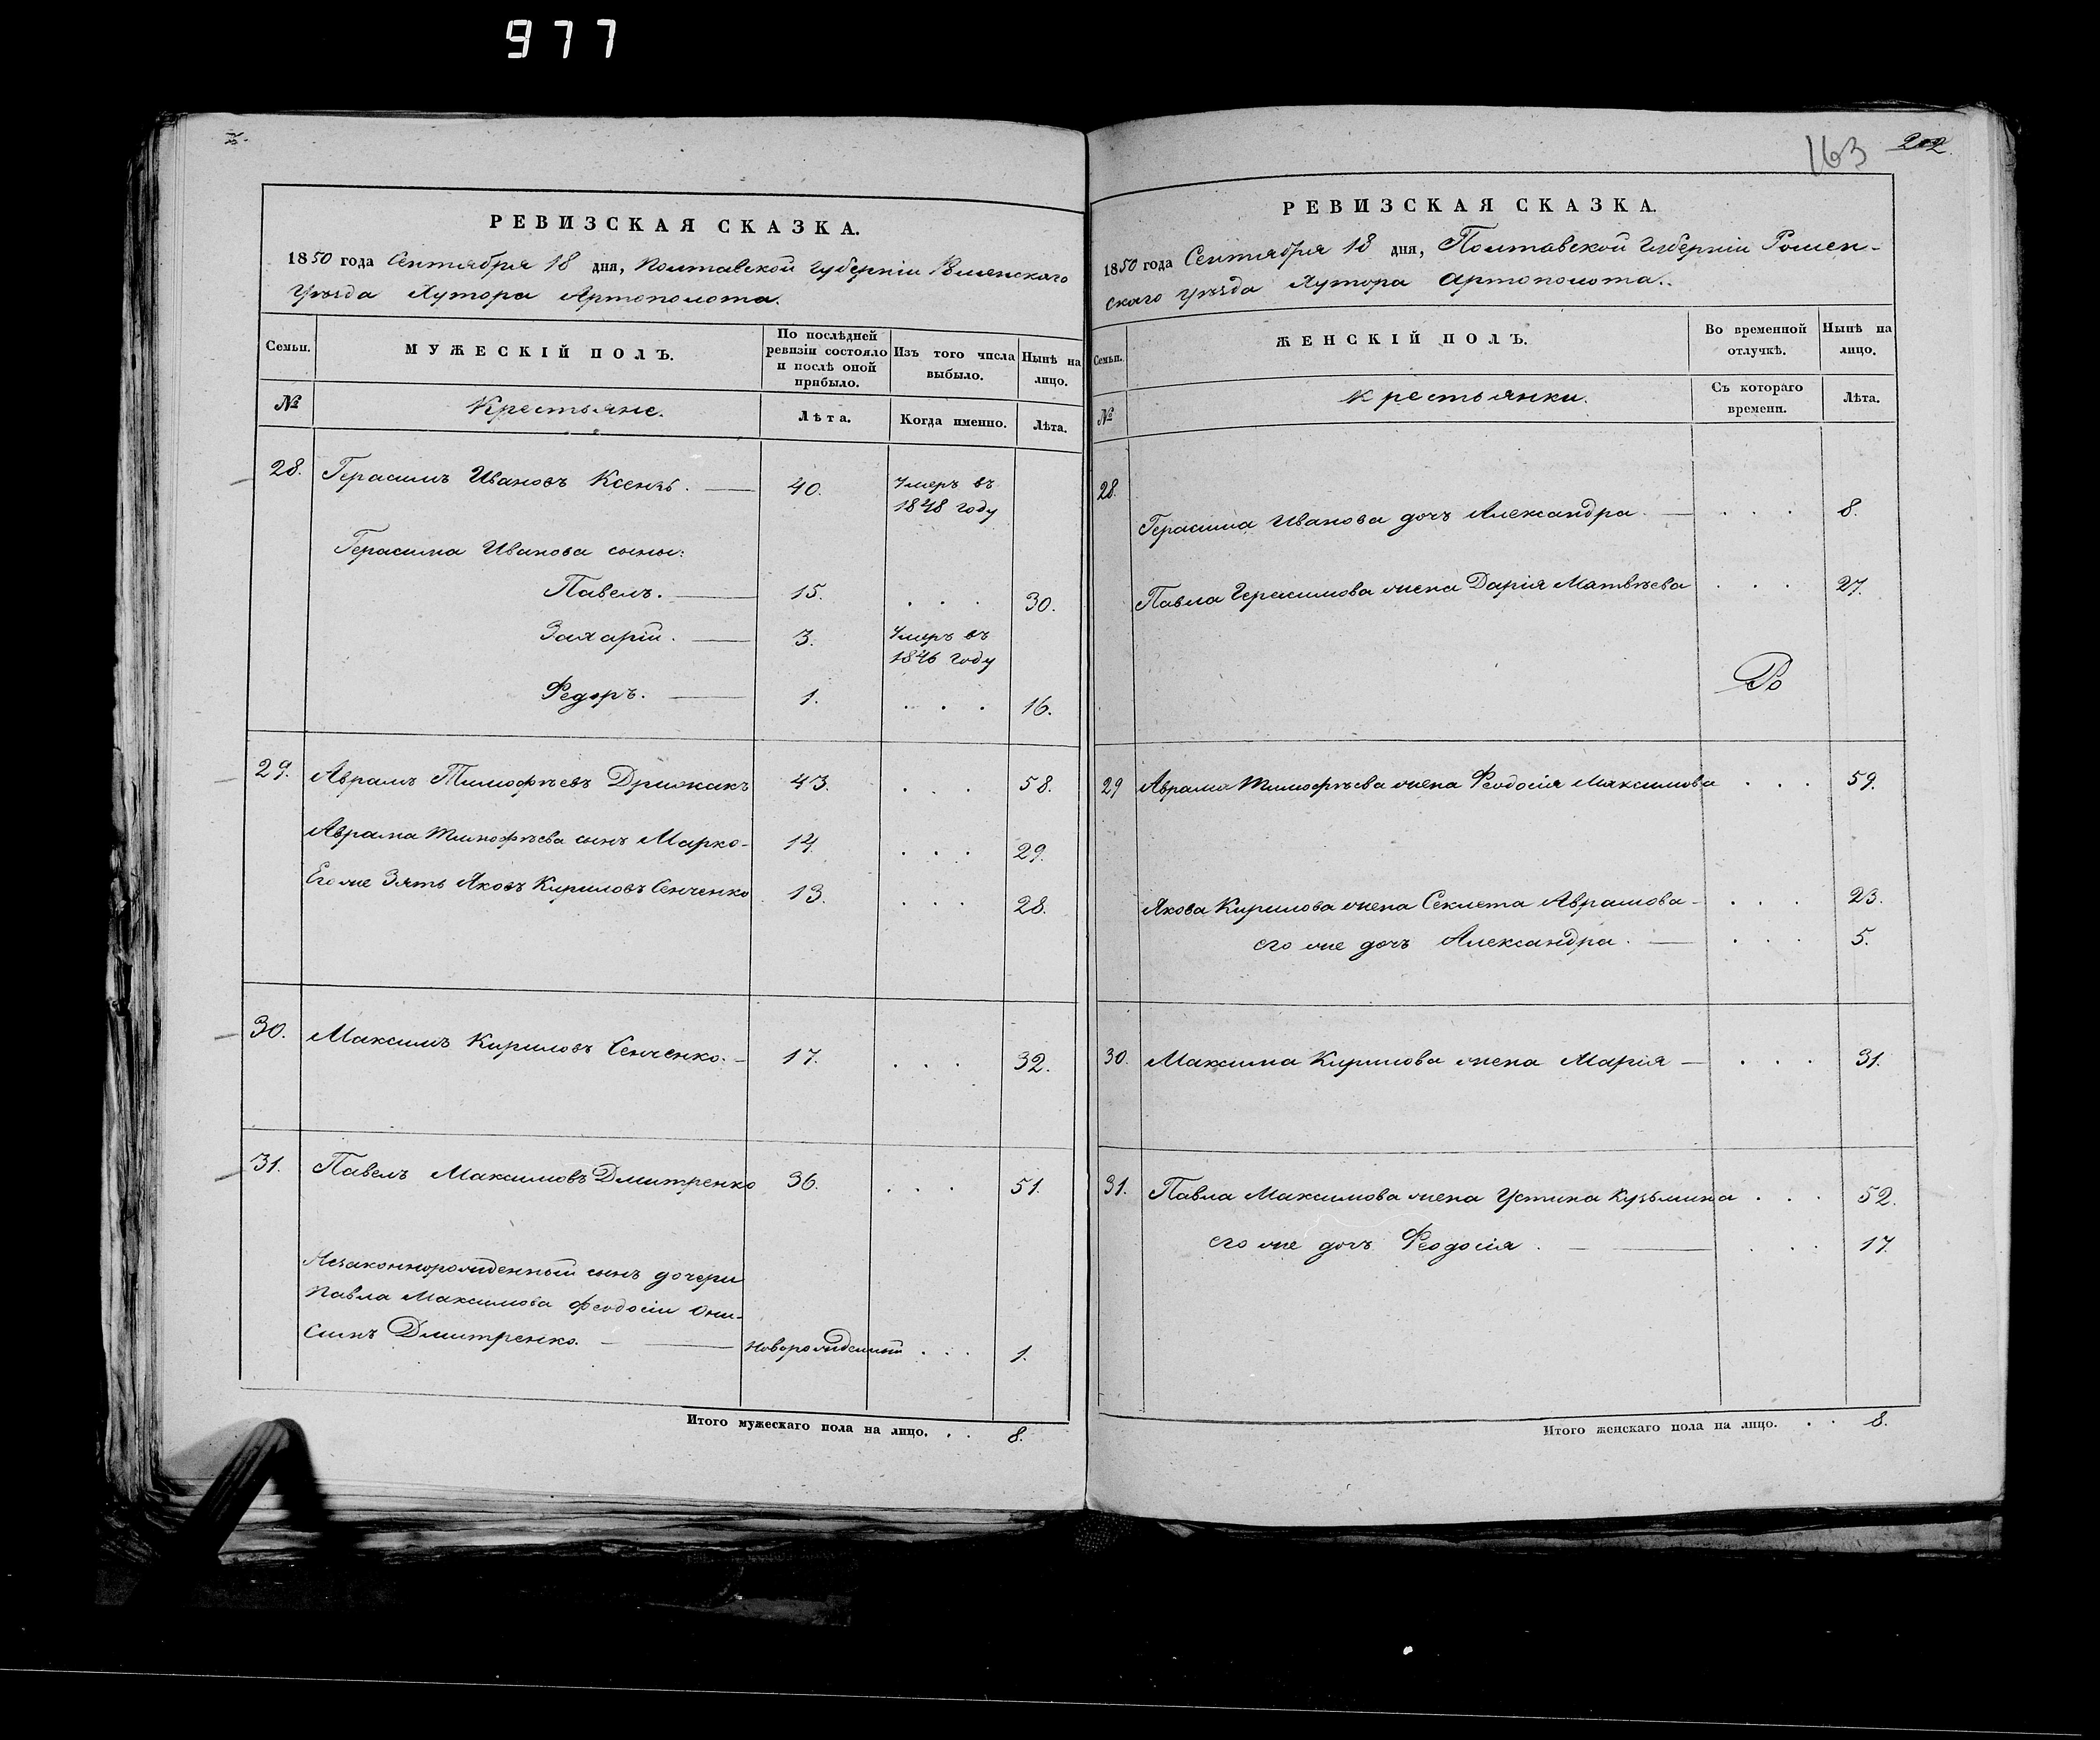 977
РЕВИЗСКАЯ СКАЗКА.
1850 года Сентября 18 дня, Полтавской Губерніи Роменскаго
Уѣзда Хутора Артополота.
Семьи. МУЖЕСКІЙ ПОЛЪ. По послѣдней ревизіи состояло и послѣ оной прибыло. Изъ того числа выбыло. Нынѣ на лицо.
№ Крестьяне. Лѣта. Когда именно. Лѣта.
28. Герасимъ Ивановъ 40. Умеръ въ
1848 году
Герасима Иванова сыны:
Павелъ. 15. . . . 30.
Захарій. 3. Умеръ въ
1846 году
Федоръ. 1. . . . 16.
29. Аврамъ Тимофѣевъ Дрижакъ 43. . . . 58.
Аврама Тимофѣева сынъ Марко 14. . . . 29.
Его же Зять Яковъ Кириловъ Сенченко 13. . . . 28.
30. Максимъ Кириловъ Сенченко. 17. . . . 32.
31. Павелъ Максимовъ Дмитренко 36. . . . 51.
Незаконнорожденный сынъ дочери
Павла Максимова Феодосіи Они-
симъ Дмитренко. новорожденный . . . 1.
Итого мужескаго пола на лицо. . . 8.
163 202.
РЕВИЗСКАЯ СКАЗКА.
1850 года Сентября 18 дня, Полтавской Губерніи Ромен-
скаго Уѣзда Хутора Артополота.
Семьи. ЖЕНСКІЙ ПОЛЪ. Во временной отлучкѣ. Нынѣ на лицо.
№ Крестьянки. Съ котораго времени. Лѣта.
28.
Герасима Иванова дочь Александра. . . . 8.
Павла Герасимова жена Дарія Матвѣева . . . 27.
Ро
29 Аврама Тимофѣева жена Феодосія Максимова . . . 59.
Якова Кирилова жена Секлета Аврамова . . . 23.
его же дочь Александра. . . . 5.
30. Максима Кирилова жена Марія . . . 31.
31. Павла Максимова жена Устина Кузьмина . . . 52.
его же дочь Феодосія. . . . 17.
Итого женскаго пола на лицо. . . 8.